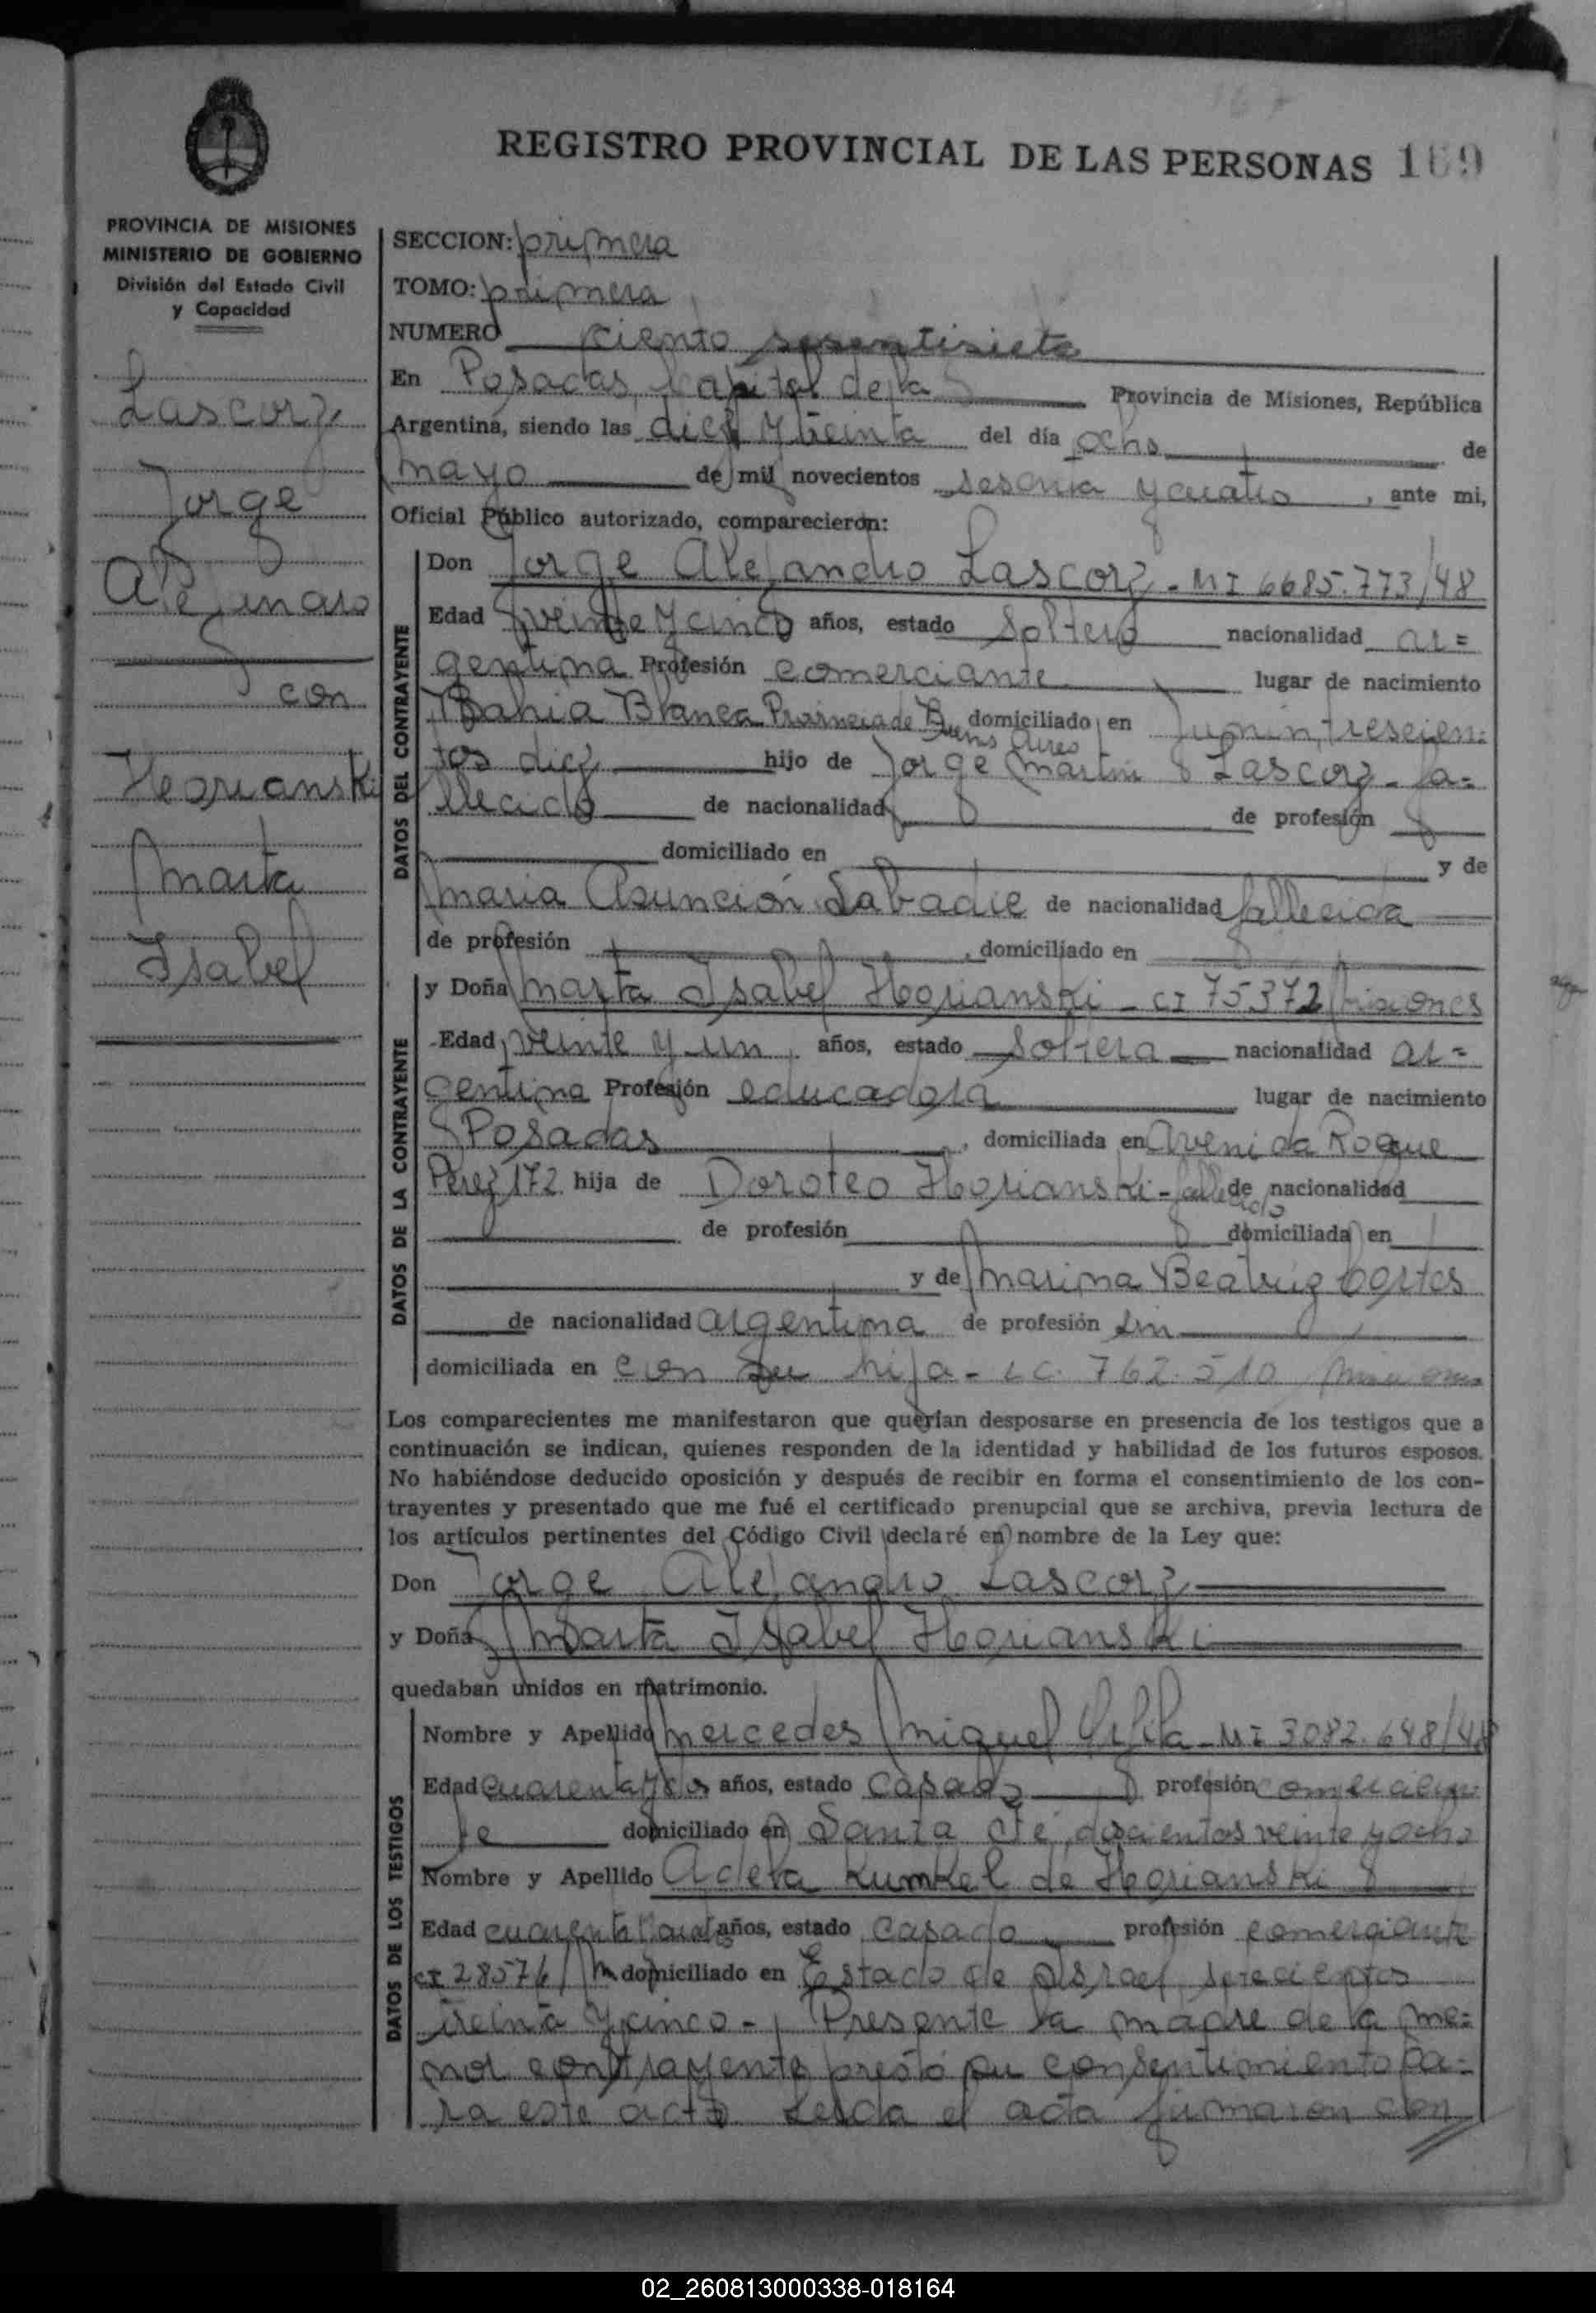 REGISTRO PROVINCIAL DE LAS PERSONAS 169
PROVINCIA DE MISIONES
MINISTERIO DE GOBIERNO
División del Estado Civil
y Capacidad
Lascorz
Jorge
Alejandro
con
Horianski
Marta
Isabel
SECCION: primera
TOMO: primera
NUMERO ciento sesentisiete
En Posadas, Capital de la Provincia de Misiones, República
Argentina, siendo las diez y treinta del día ocho de
mayo de mil novecientos sesenta y cuatro, ante mi,
Oficial Público autorizado, comparecieron:
DATOS DEL CONTRAYENTE
Don Jorge Alejandro Lascorz - MI 6685.773/48
Edad veinte y cinco años, estado soltero nacionalidad ar=
gentina Profesión comerciante lugar de nacimiento
Bahia Blanca Provincia de Buenos Aires domiciliado en Junin, trescien=
tos diez hijo de Jorge Martin Lascorz - fa=
llecido de nacionalidad de profesión
domiciliado en y de
Maria Asunción Labadie de nacionalidad fallecida
de profesión , domiciliado en
DATOS DE LA CONTRAYENTE
y Doña Marta Isabel Horianski - CI 75372 Misiones
Edad veinte y un años, estado soltera nacionalidad ar=
gentina Profesión educadora lugar de nacimiento
Posadas, domiciliada en Avenida Roque
Perez 172 hija de Doroteo Horianski - fallecido de nacionalidad
de profesión domiciliada en
y de Marina Beatriz Cortes
de nacionalidad argentina de profesión sin
domiciliada en con su hija - LC. 762.510 Misiones
Los comparecientes me manifestaron que querían desposarse en presencia de los testigos que a
continuación se indican, quienes responden de la identidad y habilidad de los futuros esposos.
No habiéndose deducido oposición y después de recibir en forma el consentimiento de los con-
trayentes y presentado que me fué el certificado prenupcial que se archiva, previa lectura de
los artículos pertinentes del Código Civil declaré en nombre de la Ley que:
Don Jorge Alejandro Lascorz
y Doña Marta Isabel Horianski
quedaban unidos en matrimonio.
DATOS DE LOS TESTIGOS
Nombre y Apellido Mercedes Miguel MI 3082.648/48
Edad cuarenta y dos años, estado casado profesión comercian
te domiciliado en Santa Fé, doscientos veinte y ocho
Nombre y Apellido Adela Kumkel de Horianski
Edad cuarenta años, estado casada profesión comerciante
CI 28576/M domiciliado en Estado de Israel, setecientos
treinta y cinco - Presente la madre de la me=
nor contrayente prestó su consentimiento pa=
ra este acto. Leida el acta firmaron con
02_260813000338-018164